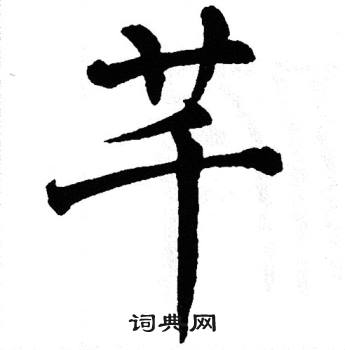 芊
词典网